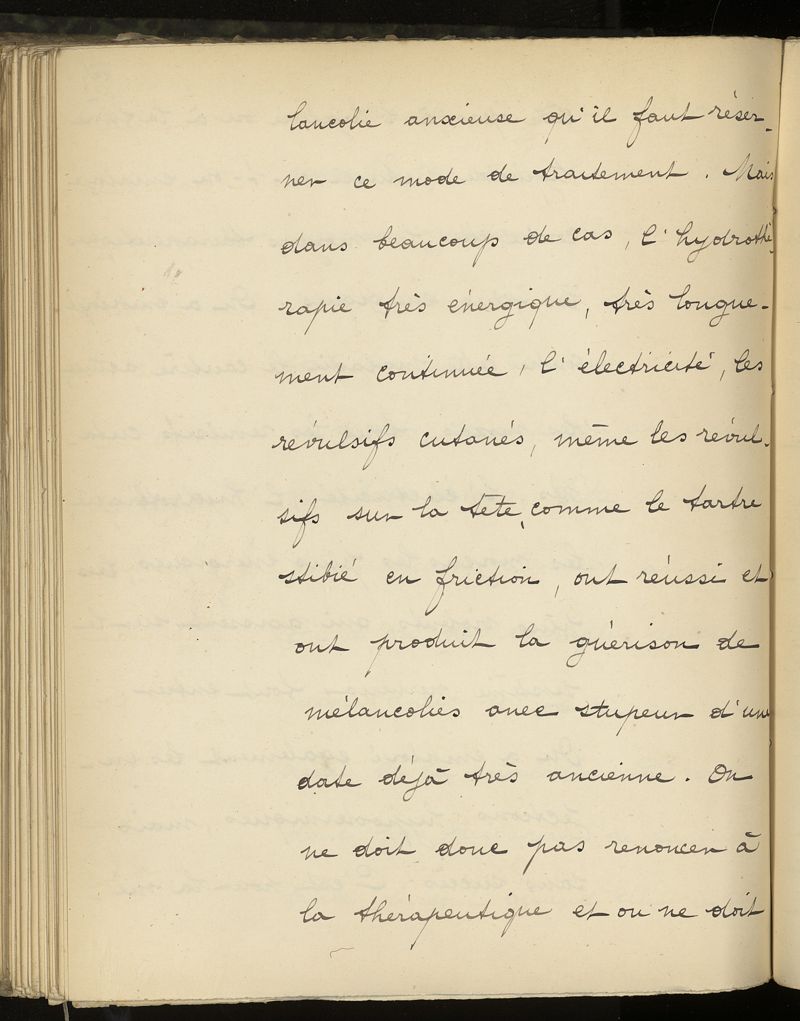 lancolie anxieuse qu'il faut réser-
ver ce mode de traitement. Mais
dans beaucoup de cas, l'hydrothé-
rapie très énergique, très longue-
ment continuée, l'électricité, les
révulsifs cutanés, même les révul-
sifs sur la tête, comme le tartre
stibié en friction, ont réussi et
ont produit la guérison de
mélancoliés avec stupeur d'une
date déjà très ancienne. On
ne doit donc pas renoncer à
la thérapeutique et on ne doit